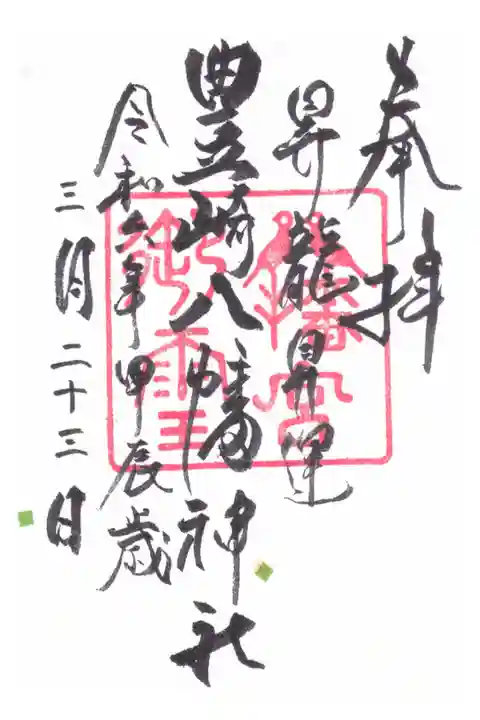 奉拝
昇龍昇運
豊崎八幡神社
令和六年甲辰歳
三月二十三日